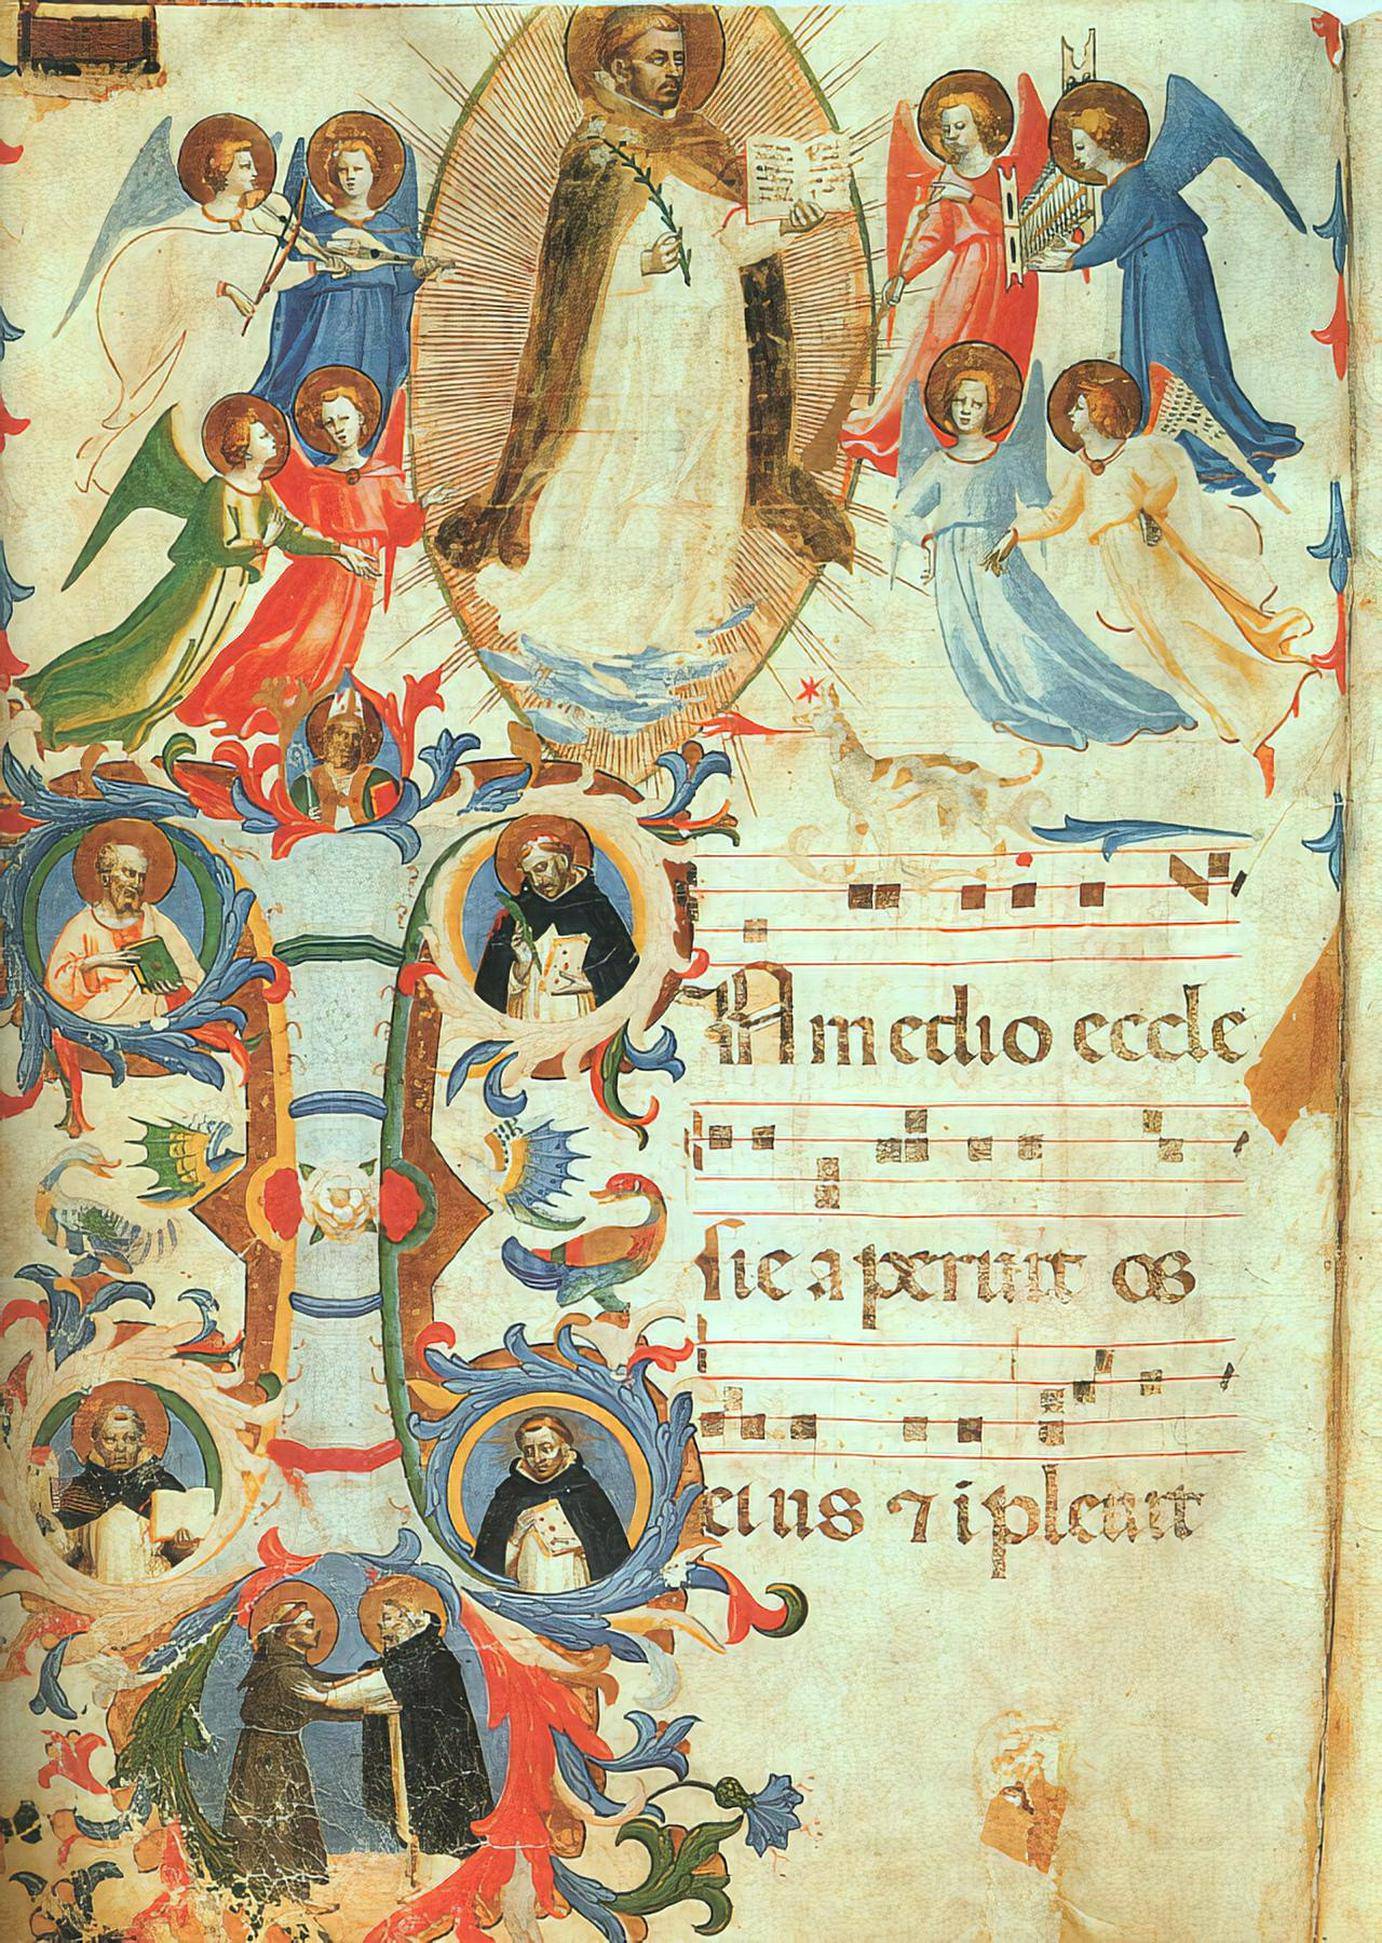 In medio eccle
sie aperuit os
eius ⁊ ipleuit